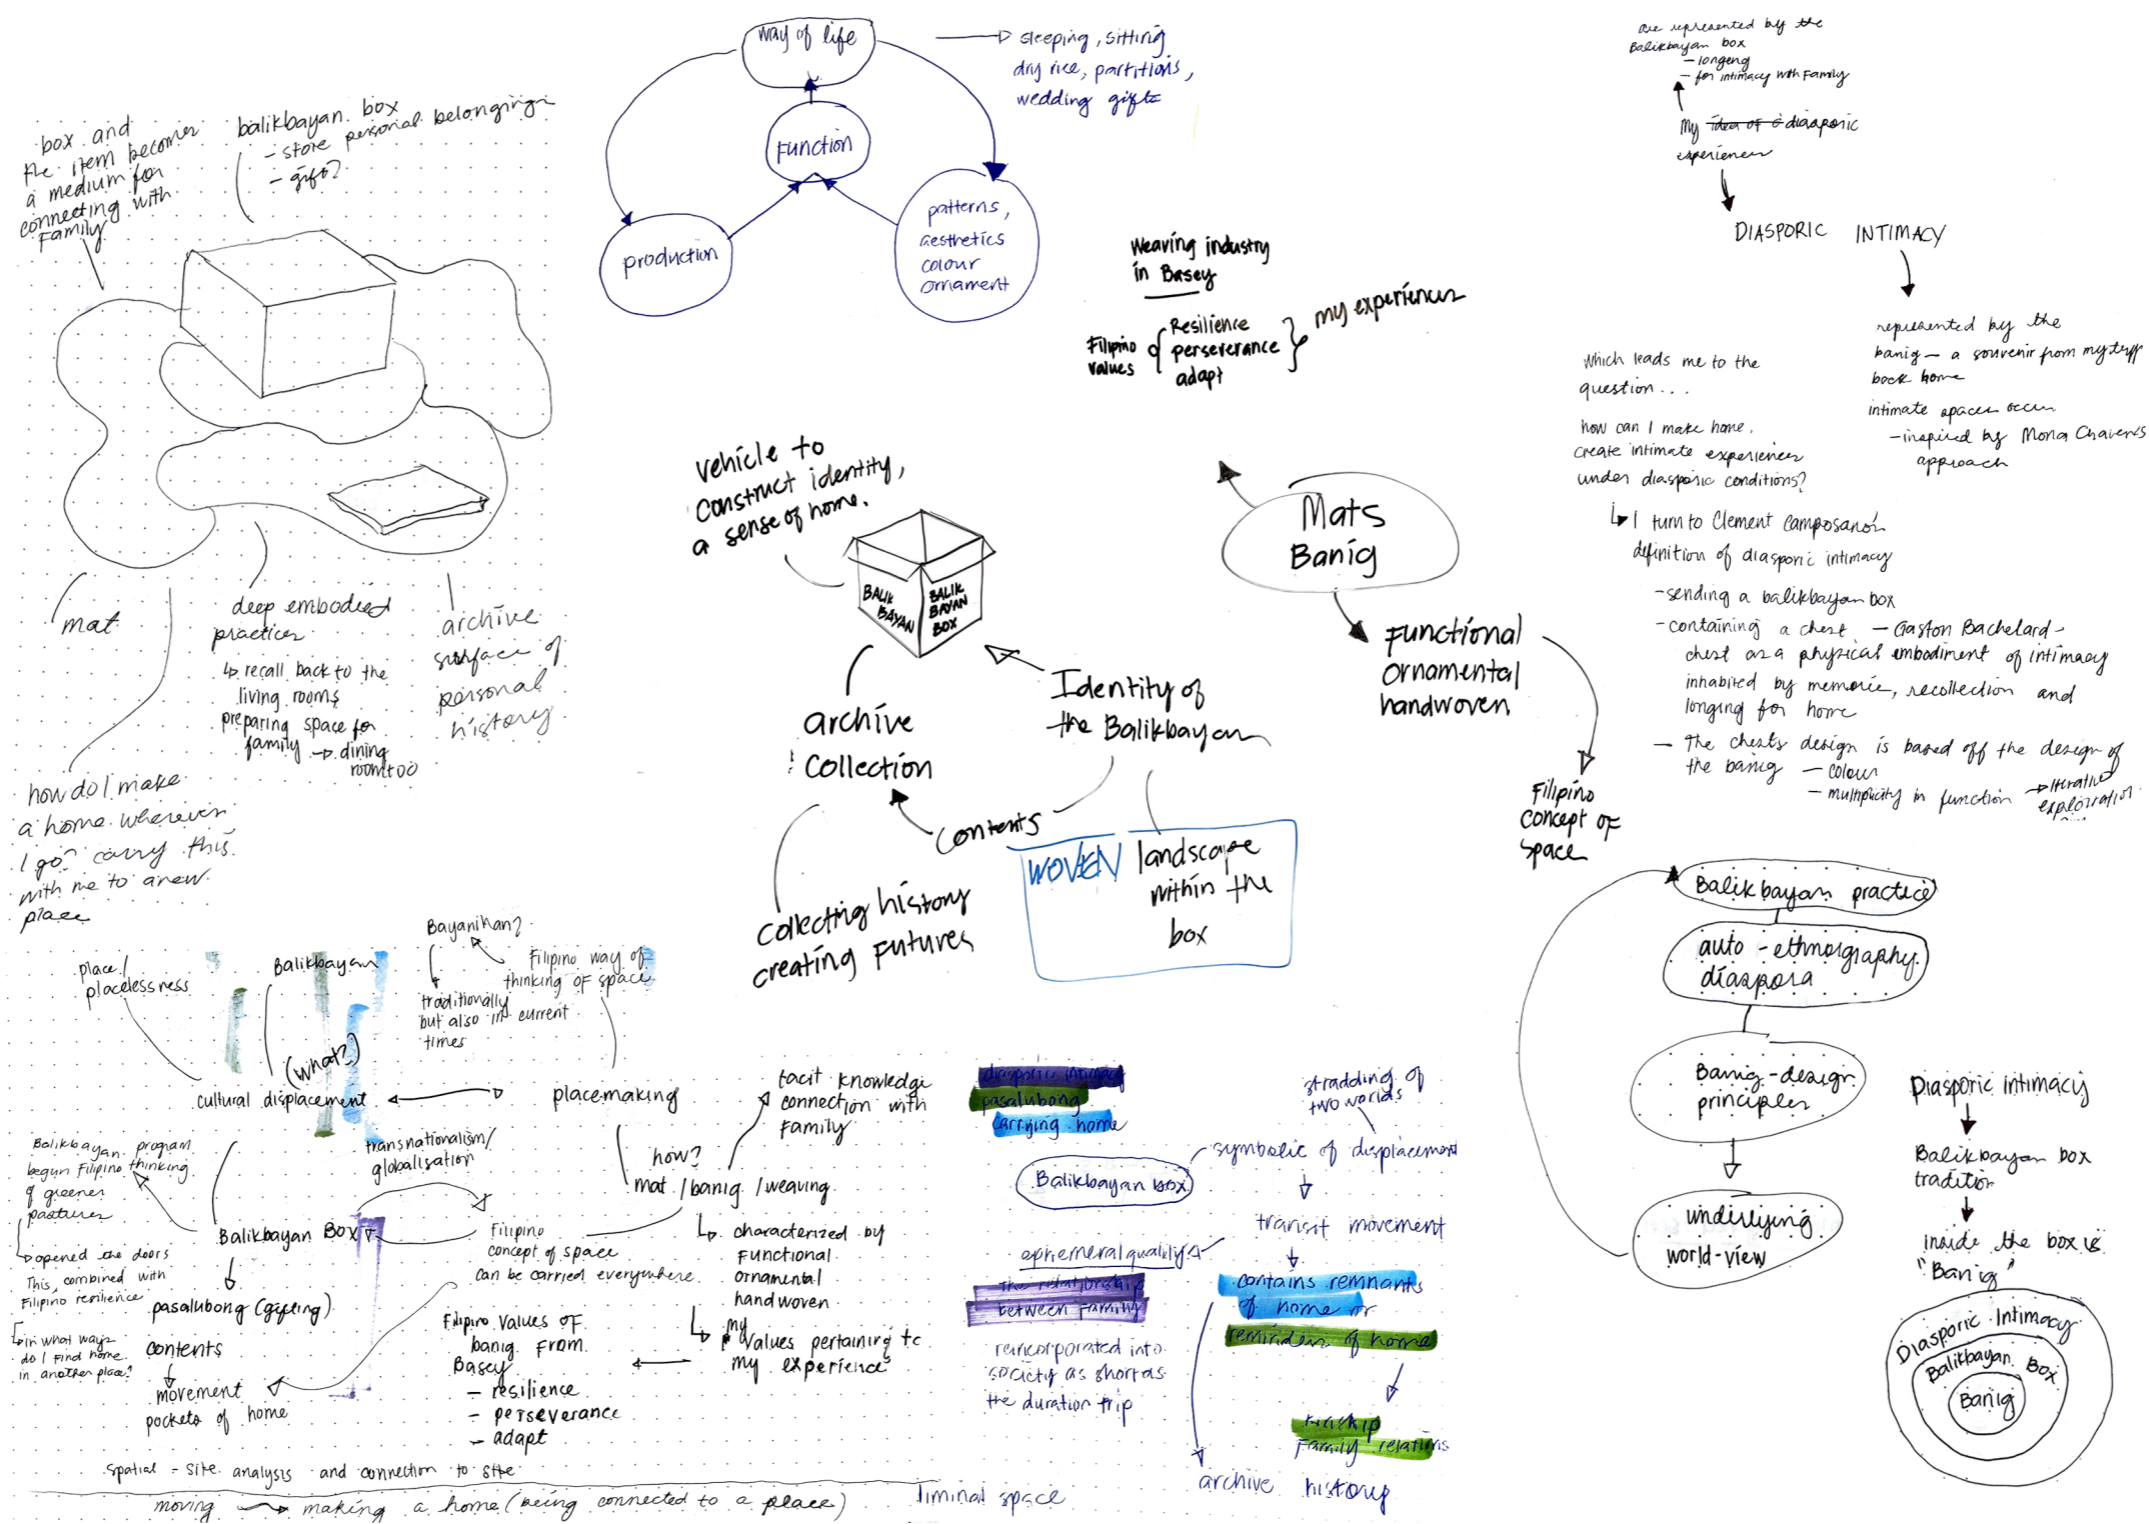 box and
the item becomes
a medium for
connecting with
family
balikbayan box
- store personal belongings
- gifts?
mat
deep embodied
practices
↳ recall back to the
living rooms
preparing space for
family → dining
room too
archive
surface of
personal
history
how do I make
a home wherever
I go? carry this
with me to a new
place
way of life
→ sleeping, sitting
dry rice, partitions,
wedding gifts
Function
production
patterns,
aesthetics
colour
ornament
Weaving industry
in Basey
Filipino
values
Resilience
perseverance
adapt
my experiences
vehicle to
construct identity,
a sense of home.
BALIK
BAYAN
BALIK
BAYAN
BOX
archive
collection
Identity of
the Balikbayan
Contents
WOVEN landscape
within the
box
collecting history
creating futures
Mats
Banig
Functional
ornamental
handwoven
Filipino
concept of
space
are represented by the
Balikbayan box
- longing
- for intimacy with family
My idea of diasporic
experiences
DIASPORIC INTIMACY
represented by the
banig – a souvenir from my trip
back home
intimate spaces occur
- inspired by Mona
approach
which leads me to the
question...
how can I make home,
create intimate experiences
under diasporic conditions?
↳ I turn to Clement Camposano's
definition of diasporic intimacy
- sending a balikbayan box
- containing a chest – Gaston Bachelard -
chest as a physical embodiment of intimacy
inhabited by memories, recollection and
longing for home
- The chests design is based off the design of
the banig - colour
- multiplicity in function → iterative
exploration
Balikbayan practice
auto-ethnography
diaspora
Banig-design
principles
underlying
world-view
Diasporic intimacy
Balikbayan box
tradition
inside the box is
"Banig"
Diasporic Intimacy
Balikbayan Box
Banig
place/
placelessness
Balikbayan
(what?)
cultural displacement
Bayanihan?
traditionally
but also in current
times
Filipino way of
thinking of space
placemaking
transnationalism/
globalisation
Balikbayan program
begun Filipino thinking
of greener
pastures
↳ opened the doors
This, combined with
Filipino resilience
↳ in what ways
do I find home
in another place?
Balikbayan Box
pasalubong (gifting)
contents
movement
pockets of home
Filipino
concept of space
can be carried everywhere
how?
mat / banig / weaving
tacit knowledge
connection with
family
↳ characterized by
functional
ornamental
handwoven
↳ my values pertaining to
my experience
Filipino values of
banig from
Basey
- resilience
- perseverance
- adapt
spatial - site analysis and connection to site
moving → making a home (being connected to a place)
diasporic intimacy
pasalubong
carrying home
Balikbayan box
stradding of
two worlds
symbolic of displacement
transit movement
ephemeral quality
The relationship
between family
reincorporated into
society as short as
the duration trip
contains remnants
of home or
reminders of home
kinship
Family relations
archive history
liminal space